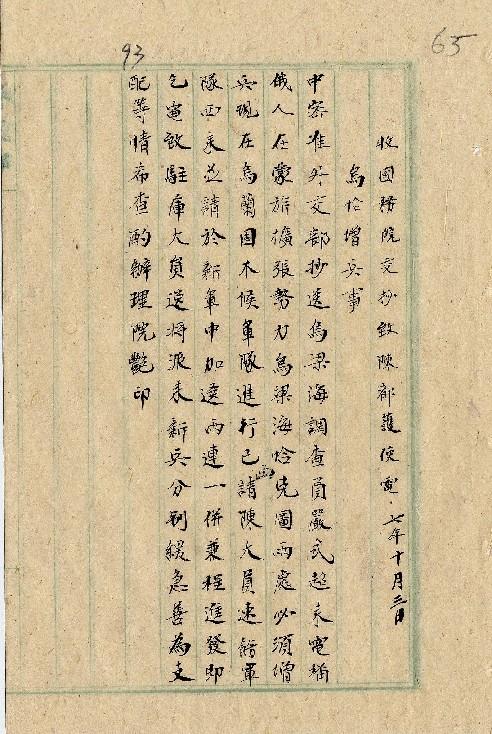 65
93
收國務院交抄致陳都護使電 七年十月三日
烏恰增兵事
中密准外交部抄送烏梁海調查員嚴式超來電稱
俄人在蒙旂擴張勢力烏梁海恰克圖兩處必須增
兵現在烏蘭固木候軍隊進行已請陳大員速飭軍
隊西來並請於新軍中加達兩連一併兼程進發即
乞電致駐庫大員迅將派來新兵分別緩急善為支
配等情希查酌辦理院艷印